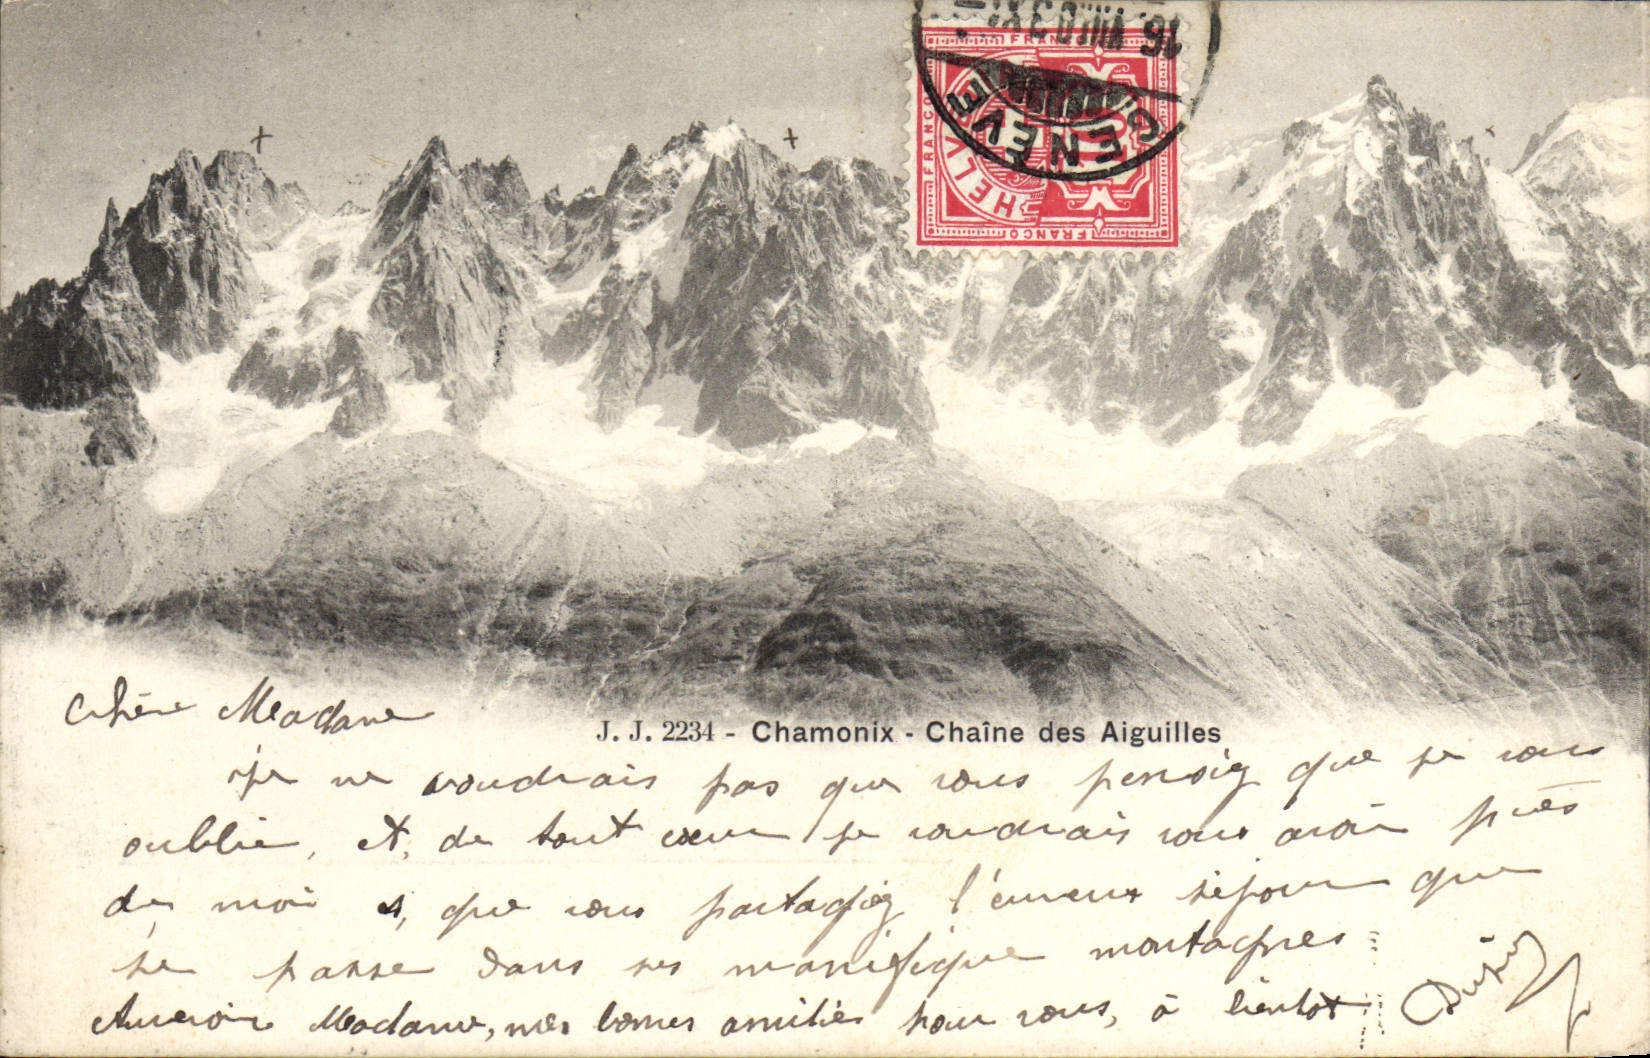 16 VIII 03 XI
GENÈVE
FRANCO
FRANCO
FRANCO
HELVETIA
10
J. J. 2234 - Chamonix - Chaîne des Aiguilles
Chère Madame
je ne voudrais pas que vous pensiez que je vous
oublie, et, de tout cœur je voudrais vous avoir près
de moi et, que vous partagiez l'eureux séjour que
je passe dans ses manifique montagnes
Aurevoir Madame, mes bonnes amitiés pour vous, à bientot